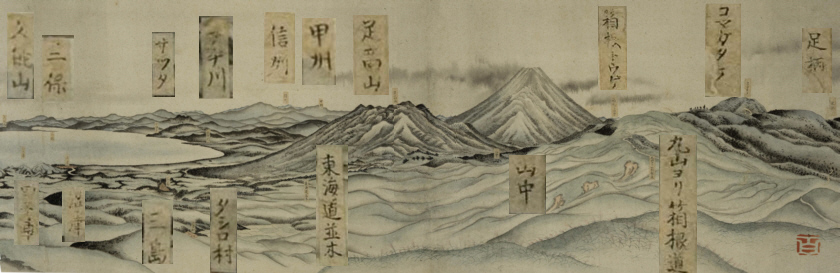 久能山
三保
サツタ
フヂ川
信州
甲州
足高山
箱根トウゲ
コマガタケ
足柄
原
三島
タシロ村
東海道並木
山中
丸山ヨリ箱根道